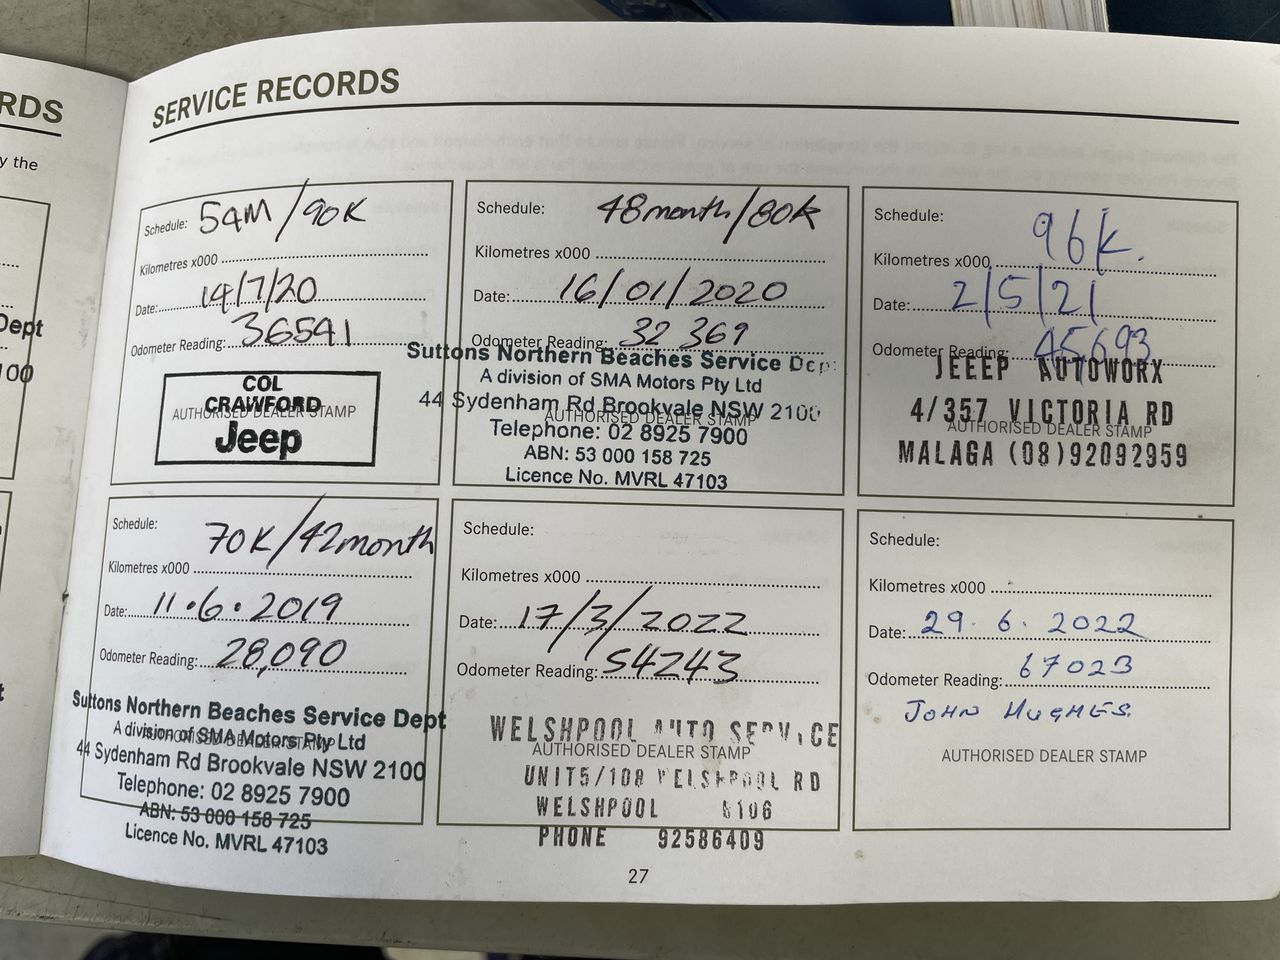 RDS
y the
Dept
100
SERVICE RECORDS
Schedule: 54M/90K
Kilometres x000
Date: 14/7/20
Odometer Reading: 36591
COL
CRAWFORD
AUTHORISED DEALER STAMP
Jeep
Schedule: 48month/80k
Kilometres x000
Date: 16/01/2020
Odometer Reading: 32 369
Suttons Northern Beaches Service Dept
A division of SMA Motors Pty Ltd
44 Sydenham Rd Brookvale NSW 2100
AUTHORISED DEALER STAMP
Telephone: 02 8925 7900
ABN: 53 000 158 725
Licence No. MVRL 47103
Schedule: 96k.
Kilometres x000
Date: 2/5/21
Odometer Reading: 45693
JEEEP AUTOWORX
4/357 VICTORIA RD
AUTHORISED DEALER STAMP
MALAGA (08)92092959
Schedule: 70K/42month
Kilometres x000
Date: 11.6.2019
Odometer Reading: 28,090
Suttons Northern Beaches Service Dept
A division of SMA Motors Pty Ltd
AUTHORISED DEALER STAMP
44 Sydenham Rd Brookvale NSW 2100
Telephone: 02 8925 7900
ABN: 53 000 158 725
Licence No. MVRL 47103
Schedule:
Kilometres x000
Date: 17/3/2022
Odometer Reading: 54243
WELSHPOOL AUTO SERVICE
AUTHORISED DEALER STAMP
UNIT5/108 WELSHPOOL RD
WELSHPOOL 6106
PHONE 92586409
Schedule:
Kilometres x000
Date: 29.6.2022
Odometer Reading: 67023
JOHN HUGHES.
AUTHORISED DEALER STAMP
27